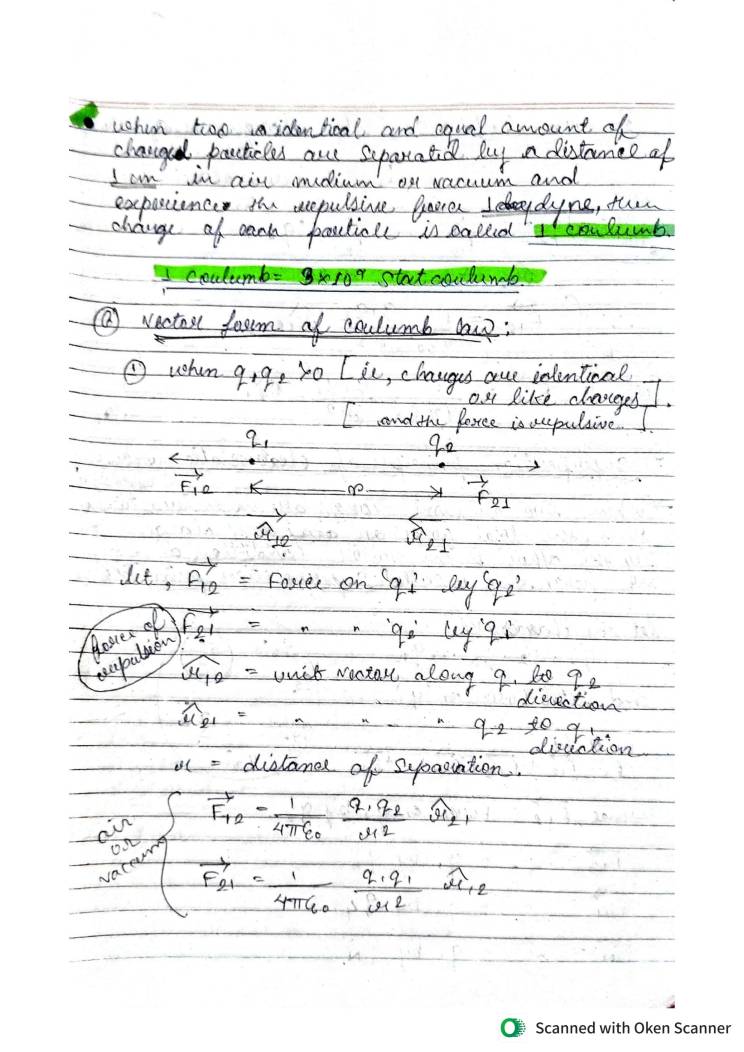 • when two identical and equal amount of
charged particles are separated by a distance of
1 cm in air midium or vacuum and
experience the repulsive force 1 dyne, then
charge of each particle is called 1 coulumb.
1 coulumb = 3×10⁹ stat coulumb.
② Vector form of coulumb law:
① when q₁q₂ >0 [ie, charges are identical
or like charges].
[and the force is repulsive].
q₁ q₂
F₁₂ r F₂₁
r̂₁₂ r̂₂₁
let, F₁₂ = Force on 'q₁' by 'q₂'
force of repulsion
F₂₁ = " " 'q₂' by 'q₁'
r̂₁₂ = unit vector along q₁ to q₂
direction
r̂₂₁ = " " " q₂ to q₁
direction
r = distance of separation.
air or vaccum
F₁₂ = 1/4πε₀ q₁q₂/r² r̂₂₁
F₂₁ = 1/4πε₀ q₁q₁/r² r̂₁₂
Scanned with Oken Scanner